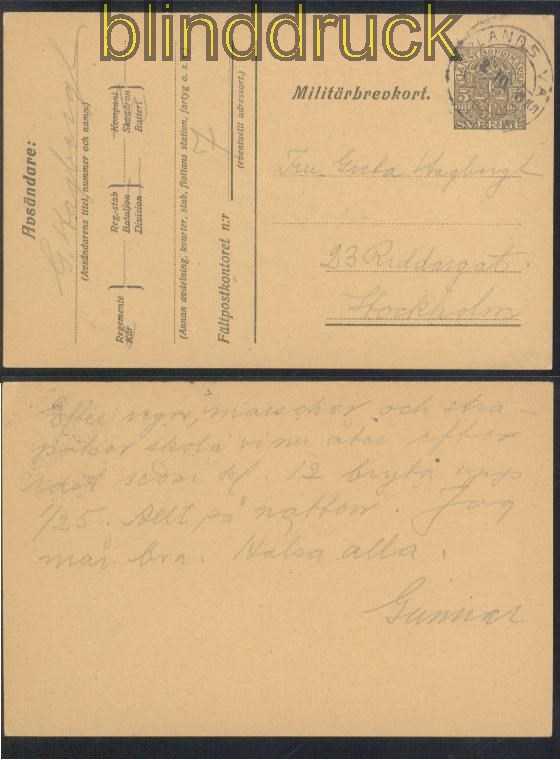 blinddruck
Militärbrevkort.
TJÄNSTEFRIMÄRKE
SVERIGE
Avsändare:
G. Hagbergh
(Avsändarens titel, nummer och namn)
Regemente
Kår
Reg.-stab
Bataljon
Division
Kompani
Skvadron
Batteri
(Annan avdelning, kvarter, stab, flottans station, fartyg o. s. v.)
Fältpostkontoret n:r 7
(eventuellt adressort.)
Fru Greta Hagbergh
23 Riddargat.
Stockholm
Efter regn, marscher och stra-
patser skola vi nu åter efter
rast sedan kl. 12 bryta upp
1/25. Allt på natten. Jag
mår bra. Hälsa alla.
Gunnar